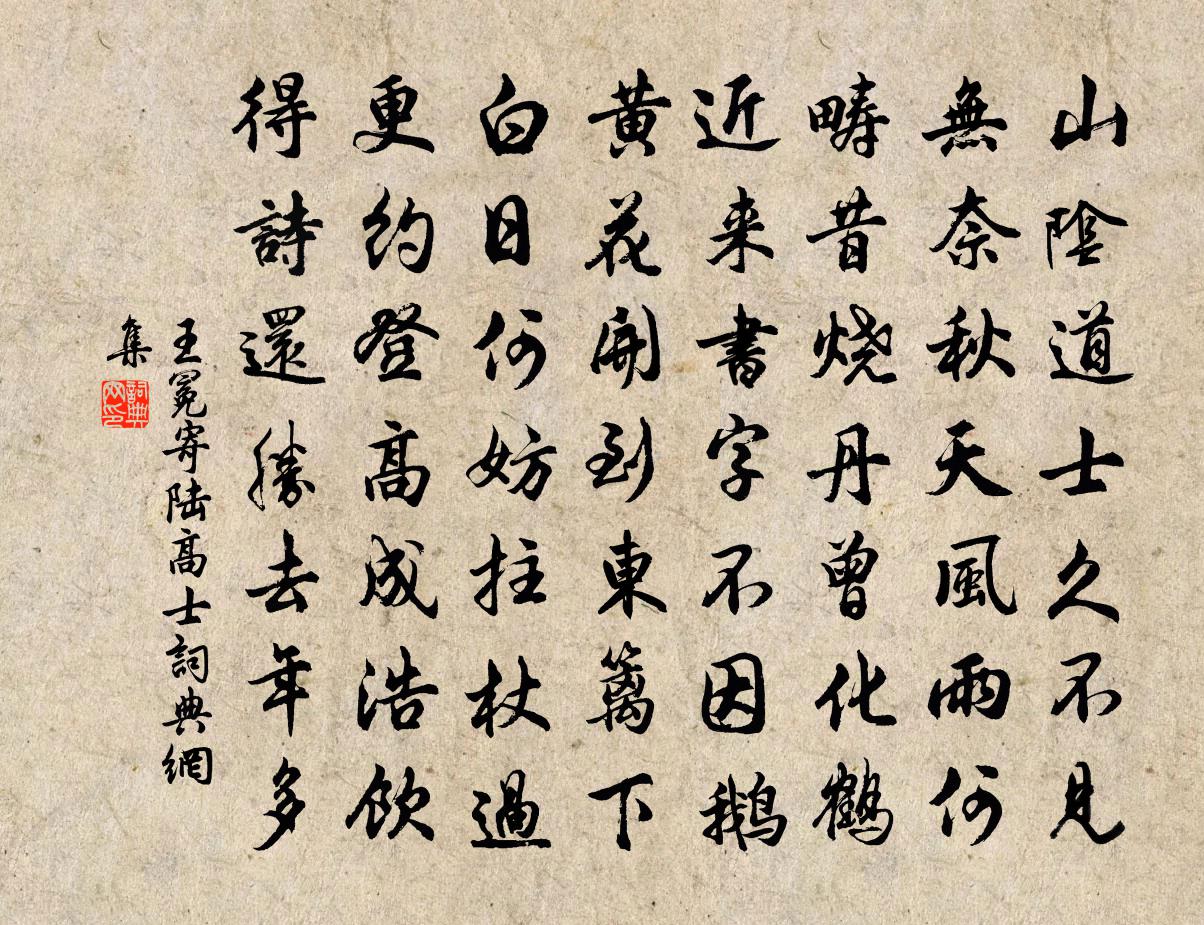 山陰道士久不見
無奈秋天風雨何
疇昔燒丹曾化鶴
近来書字不因鵝
黃花開到東籬下
白日何妨拄杖過
更約登高成浩飲
得詩還勝去年多
王冕寄陆高士詞典網
集
詞典网印